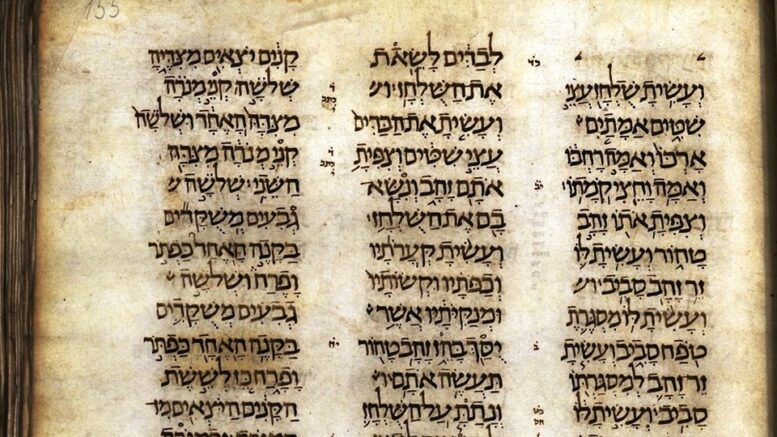 וְעָשִׂיתָ שֻׁלְחָן עֲצֵי
שִׁטִּים אַמָּתַיִם
אָרְכּוֹ וְאַמָּה רָחְבּוֹ
וְאַמָּה וָחֵצִי קֹמָתוֹ׃
וְצִפִּיתָ אֹתוֹ זָהָב
טָהוֹר וְעָשִׂיתָ לּוֹ
זֵר זָהָב סָבִיב׃
וְעָשִׂיתָ לּוֹ מִסְגֶּרֶת
טֹפַח סָבִיב וְעָשִׂיתָ
זֵר זָהָב לְמִסְגַּרְתּוֹ
סָבִיב׃ וְעָשִׂיתָ לּוֹ
לְבַדִּים לָשֵׂאת
אֶת הַשֻּׁלְחָן׃
וְעָשִׂיתָ אֶת הַבַּדִּים
עֲצֵי שִׁטִּים וְצִפִּיתָ
אֹתָם זָהָב וְנִשָּׂא
בָם אֶת הַשֻּׁלְחָן׃
וְעָשִׂיתָ קְּעָרֹתָיו
וְכַפֹּתָיו וּקְשׂוֹתָיו
וּמְנַקִּיֹּתָיו אֲשֶׁר
יֻסַּךְ בָּהֵן זָהָב טָהוֹר
תַּעֲשֶׂה אֹתָם׃
וְנָתַתָּ עַל הַשֻּׁלְחָן
קָנִים יֹצְאִים מִצִּדֶּיהָ
שְׁלֹשָׁה קְנֵי מְנֹרָה
מִצִּדָּהּ הָאֶחָד וּשְׁלֹשָׁה
קְנֵי מְנֹרָה מִצִּדָּהּ
הַשֵּׁנִי׃ שְׁלֹשָׁה
גְבִעִים מְשֻׁקָּדִים
בַּקָּנֶה הָאֶחָד כַּפְתֹּר
וָפֶרַח וּשְׁלֹשָׁה
גְבִעִים מְשֻׁקָּדִים
בַּקָּנֶה הָאֶחָד כַּפְתֹּר
וָפָרַח כֵּן לְשֵׁשֶׁת
הַקָּנִים הַיֹּצְאִים מִן